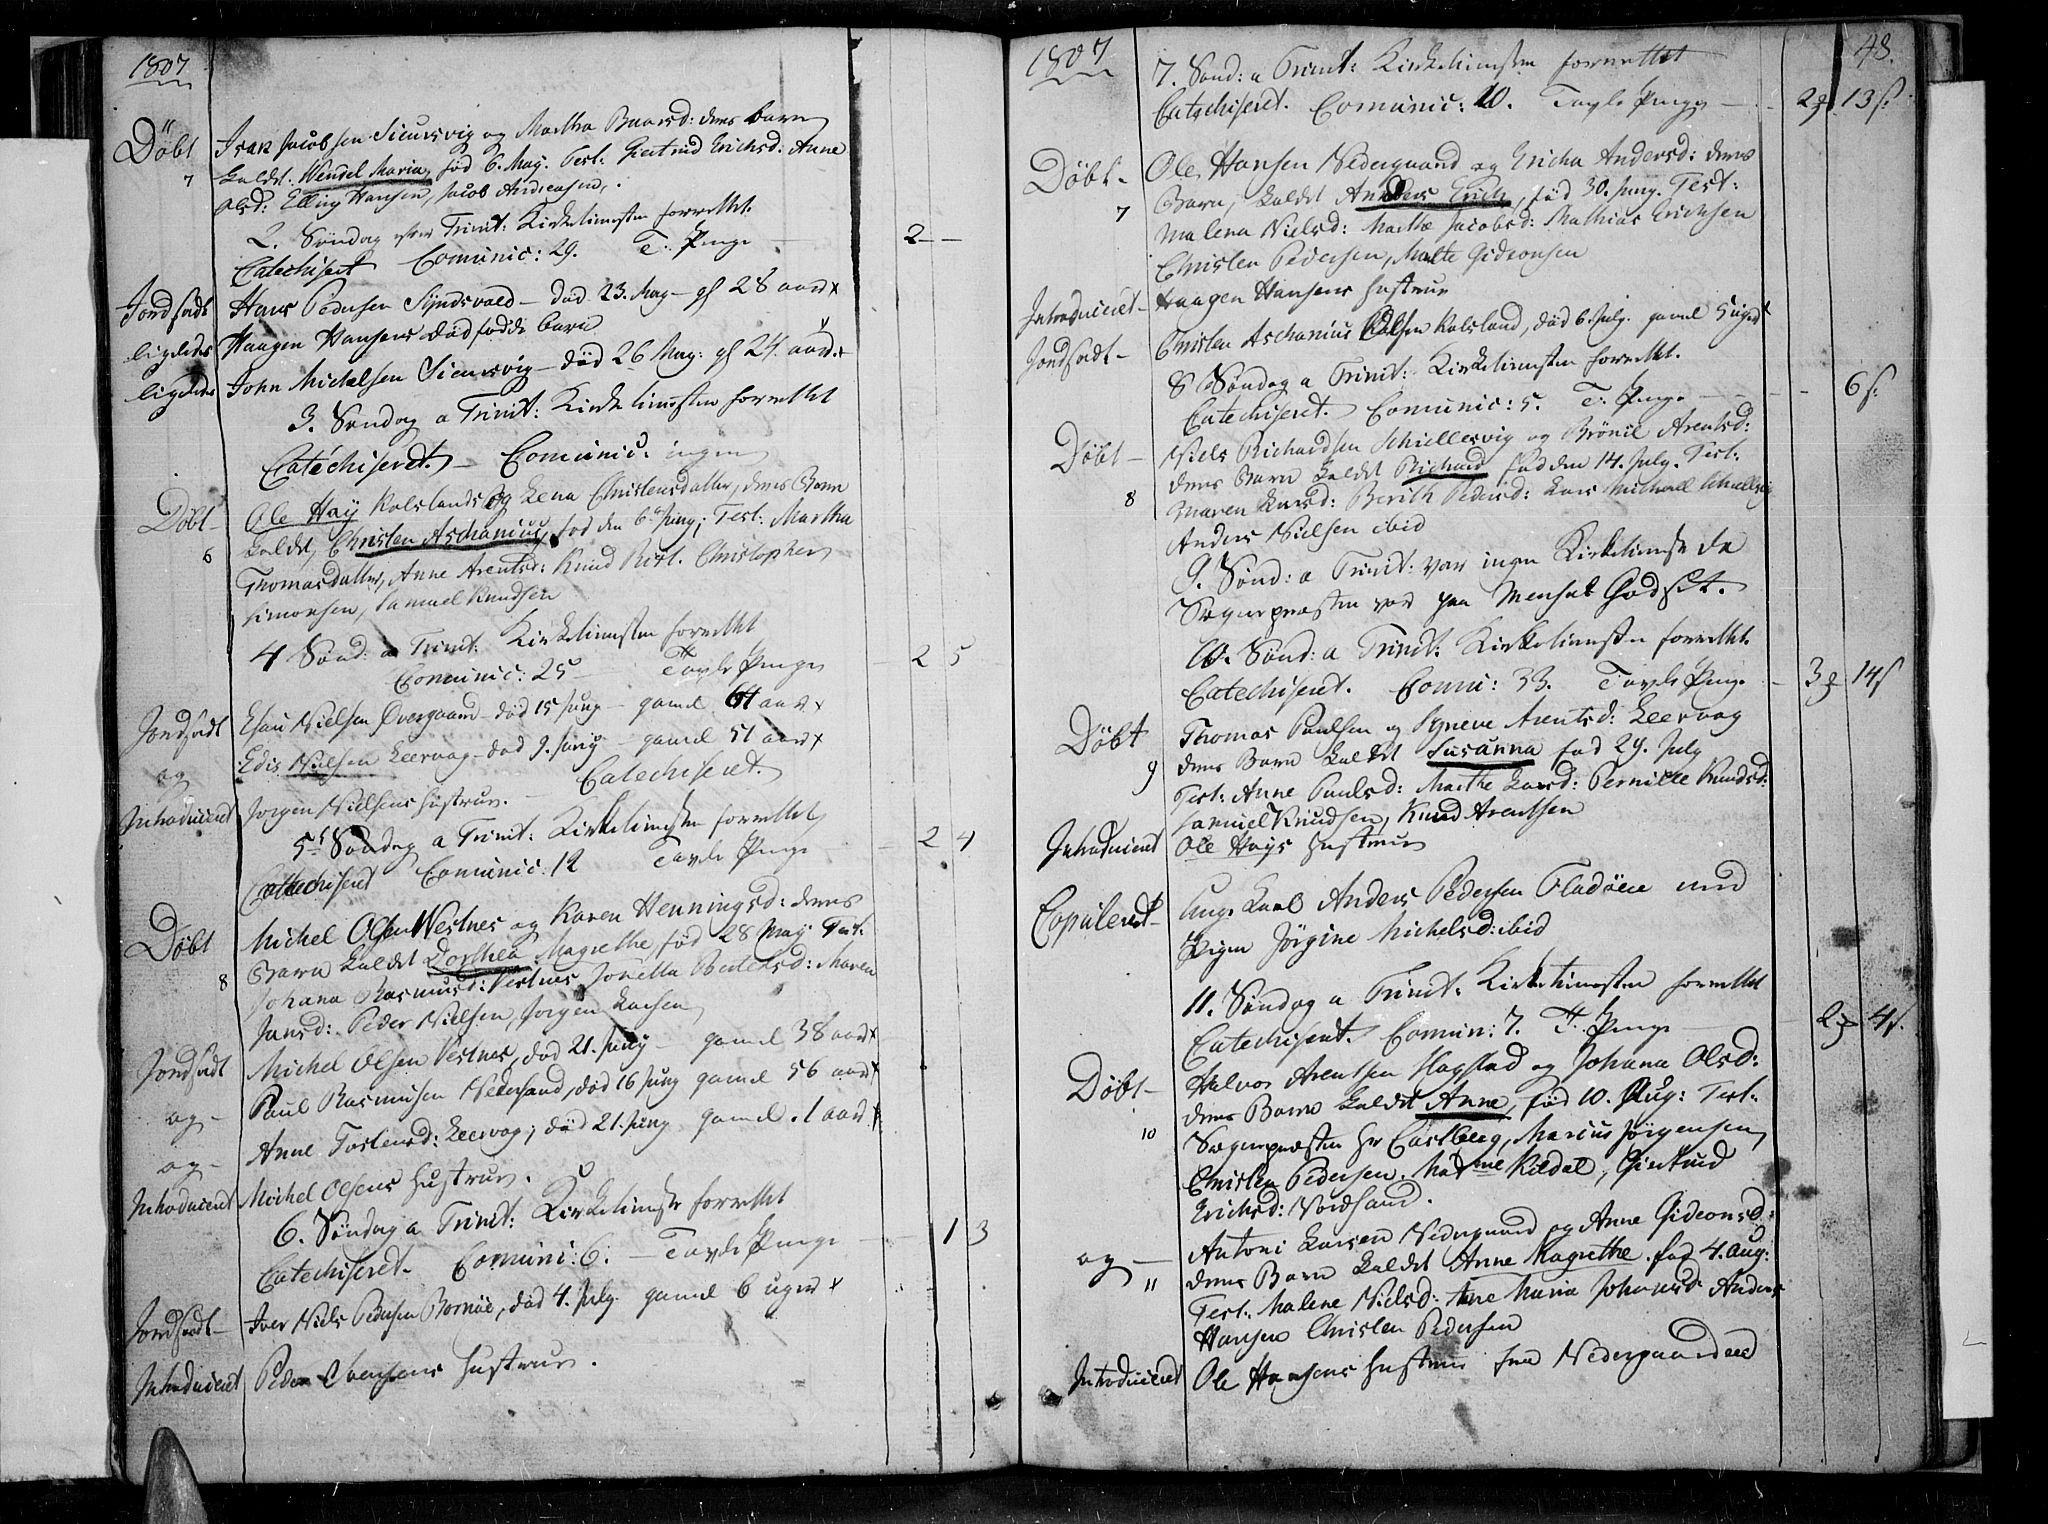 1807
Döbt Isak Jacobsen Sieursvig og Martha Baarsd: deres barn
7 kaldet Wendel Maria, fød 6. May. Test: Giertrud Erichsd: Anne
Olsd: Elling Hansen, Jacob Andreasen.
2. Søndag efter Trinit: Kirketienesten forrettet.
Catechiseret Comunic: 29. T. Penge 2 - -
Jordfæst Hans Pedersen Syndsvold - død 23. May - gl 28 aar x
ligeledes Haagen Hansens dødfødde barn
ligeledes John Michelsen Sieursvig - død 26 May: gl 24. aar. x
3. Søndag a Trinit: Kirketienesten forrettet
Catechiseret. - Comunic: ingen
Døbt Ole Høy Kolsland og Lena Christensdatter, deres Barn
6 kaldet, Christen Aschanius, fød den 6te Juny; Test: Martha
Thomasdatter, Anne Arentsd: Knud Christopher
Simonsen, Samuel Knudsen
4 Sønd: a Trinit: Kirketienesten forrettet
Comunic: 25 - Tavle Penge - 2 5
Jordfæst Esau Nielsen Overgaard - død 15 Juny - gamel 64 aar x
og Edis Nielsen Leervog - død 9. Juny - gamel 51 aar x
Catechiseret.
Introduceret Jørgen Nielsens Hustrue. -
5te Søndag a Trinit: Kirketienesten forrettet
Catechiseret Comunic: 12 Tavle Penge - 2 4
Døbt Michel Olsen Vestnes og Karen Henningsd: deres
8 Barn kaldet Dorthea Magrethe fød 28 May Test:
Johana Rasmusd: Vestnes Jonetta Bertelsd: Maren
Jansd: Peder Nielsen, Jørgen Larsen
Jordfæst Michel Olsen Vestnes, død 21. Juny - gamel 38 aar x
og - Paul Rasmusen Nedersand, død 16 Juny gamel 56 aar x
og - Anne Tostensd: Leervog; død 21. Juny gamel . 1 aar x
Introduceret Michel Olsens Hustrue.
6. Søndag a Trinit: Kirketieneste forrettet
Catechiseret. Comuni: 6: - Tavle Penge - 1 3
Jordfæst - Iver Niels Pedersen Bornøe, død 4. July. gamel 6 uger x
Introduceret Peder Iversens Hustrue.
1807 48.
7. Sønd: a Trinit: Kirketienesten forrettet
Catechiseret. Comunic: 10. Tavle Penge - 2 13 s.
Døbt - Ole Hansen Nedergaard og Ericha Andersd: deres
7 Barn, kaldet Anders Erich, fød 30. Juny. Test:
Malena Nielsd: Marthe Jacobsd: Mathias Erichsen
Christen Pedersen, Malte Gideonsen
Introduceret - Haagen Hansens Hustrue
Jordfæst - Christen Aschanius Olsen Kolsland, død 6. July. gamel 5 uger x
8 Søndag a Trinit: Kirketienesten forrettet.
Catechiseret. Comunic: 5. T: Penge - - 6 s.
Døbt - Niels Richardsen Schiellesvig og Brönil Arentsd:
8 deres Barn kaldet Richard fød den 14. July. Test:
Maren Larsd: Berith Pedersd: Lars Michael Schiellesvig
Anders Nielsen ibid
9. Sønd: a Trinit: var ingen Kirketieneste da
Sognepræsten var paa Mensal Godset.
10. Sønd: a Trinit: Kirketienesten forrettet.
Catechiseret. Comu: 33. Tavle Penge - 3 14 s
Døbt Thomas Paulsen og Synneve Arentsd: Leervog
9 deres Barn kaldet Susanna fød 29. July
Test: Anne Paulsd: Marthe Larsd: Pernille Knudsd:
Samuel Knudsen, Knud Arentsen
Introduceret Ole Høys Hustrue
Copuleret - Unge Karl Anders Pedersen Fladøen med
Pigen Jørgine Michelsd: ibid
11. Søndag a Trinit: Kirketienesten forrettet
Catechiseret. Comun: 7. T. Penge 2 4 s.
Døbt - Halvor Arentsen Hogstad og Johana Olsd:
10 deres Barn kaldet Anne, fød 10. Aug: Test:
Sognepræsten Hr Castberg, Marcus Jørgensen
Christen Pedersen. Madme Kildal, Giertrud
Erichsd: Nordsand.
og - Antoni Larsen Nedergaard og Anne Gideonsd:
11 deres Barn kaldet Anne Magrethe. fød 4. Aug:
Test: Malene Nielsd: Ane Maria Johansd: Anders
Hansen Christen Pedersen
Introduceret Ole Hansens Hustrue fra Nedergaarden